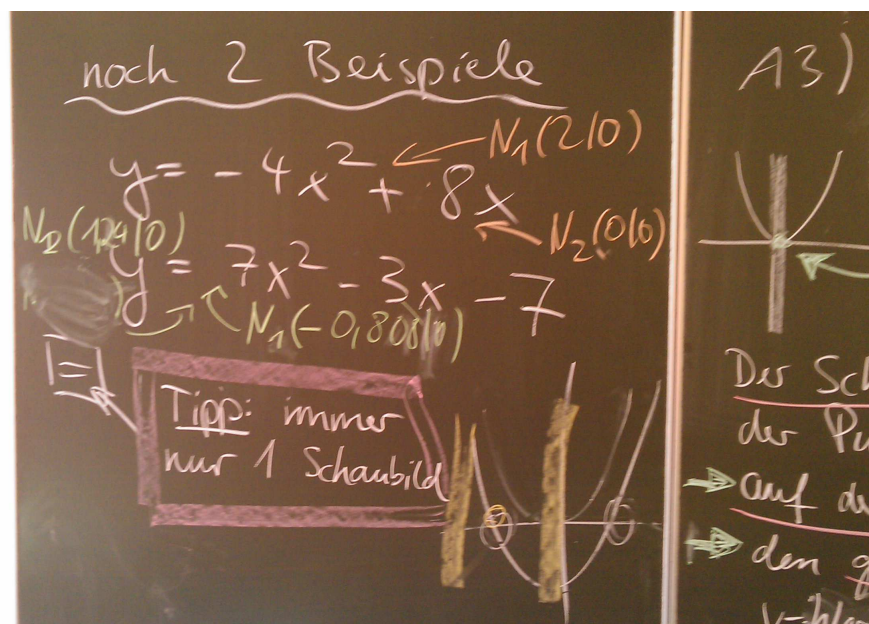 noch 2 Beispiele
y = - 4x² + 8x
N₁(2|0)
N₂(0|0)
N₂(1,24|0)
y = 7x² - 3x - 7
N₁(-0,808|0)
Tipp: immer
nur 1 Schaubild
A3)
Der Sch
der Pu
auf de
den g